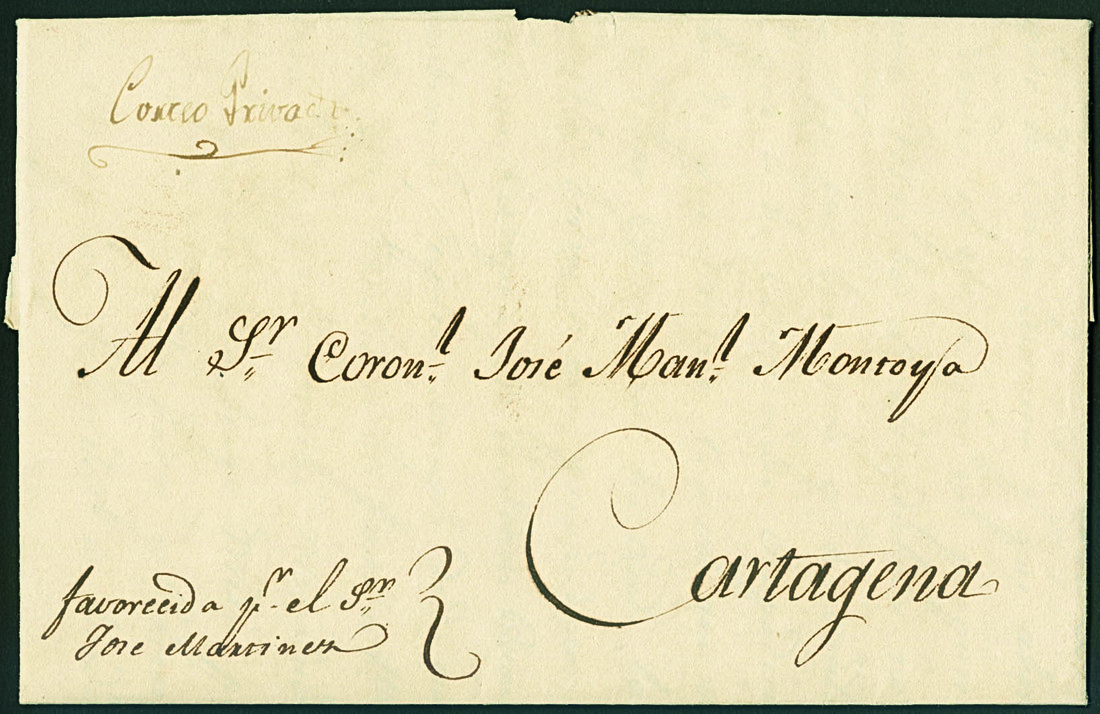 Correo Privado
Al Sr. Coronl. José Manl. Montoya
Cartagena
favorecida pr. el Sr.
Jose Martinez